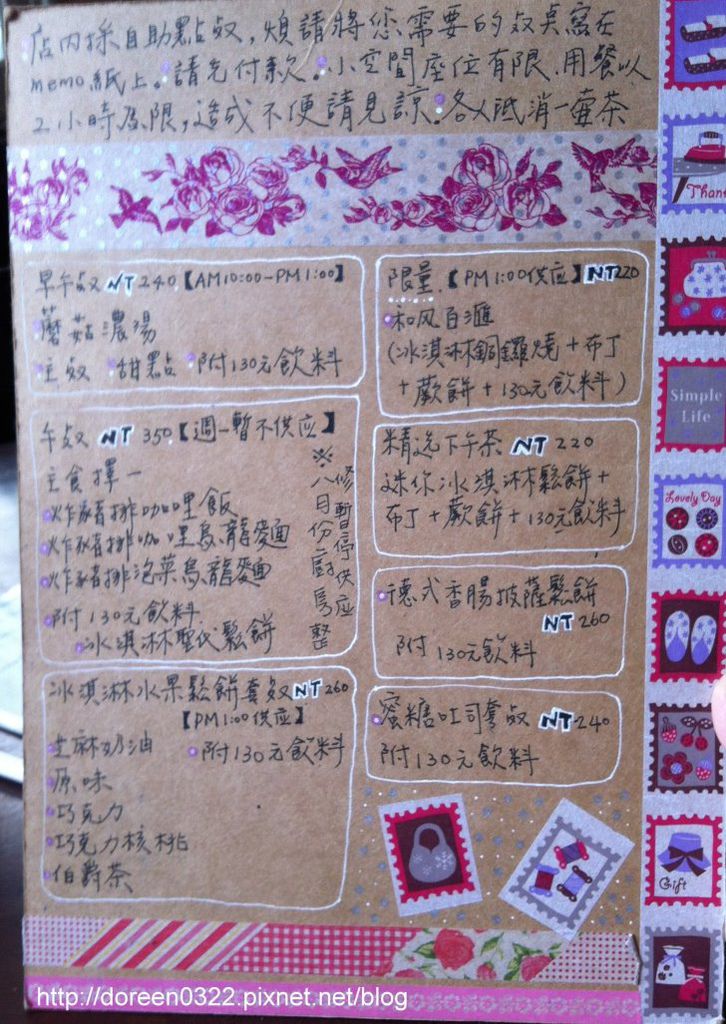 店內採自助點餐,煩請將您需要的餐點寫在
memo紙上。請先付款。小空間座位有限.用餐以
2小時為限,造成不便請見諒。各人低消一壺茶
早午餐 NT 240【AM10:00-PM1:00】
蘑菇濃湯
主餐 甜點 附130元飲料
午餐 NT 350【週一暫不供应】
主食擇一
炸豬排咖哩飯
炸豬排咖哩烏龍麵
炸豬排泡菜烏龍麵
附130元飲料
冰淇淋聖代鬆餅
※八月份廚房整
修暫停供应
冰淇淋水果鬆餅套餐 NT 260
【PM1:00供应】
芝麻奶油 附130元飲料
原味
巧克力
巧克力核桃
伯爵茶
限量【PM1:00供应】NT220
和风百滙
(冰淇淋銅鑼燒+布丁
+蕨餅+130元飲料)
精选下午茶 NT 220
迷你冰淇淋鬆餅+
布丁+蕨餅+130元飲料
德式香腸披薩鬆餅
NT 260
附130元飲料
蜜糖吐司套餐 NT 240
附130元飲料
Simple
Life
Lovely Day
Gift
http://doreen0322.pixnet.net/blog